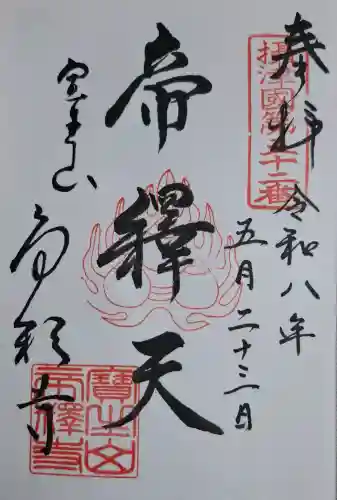 奉拝
摂津國第五十二番
令和八年
五月二十三日
帝釋天
宝生山
帝釈寺
寶生山
帝釋寺